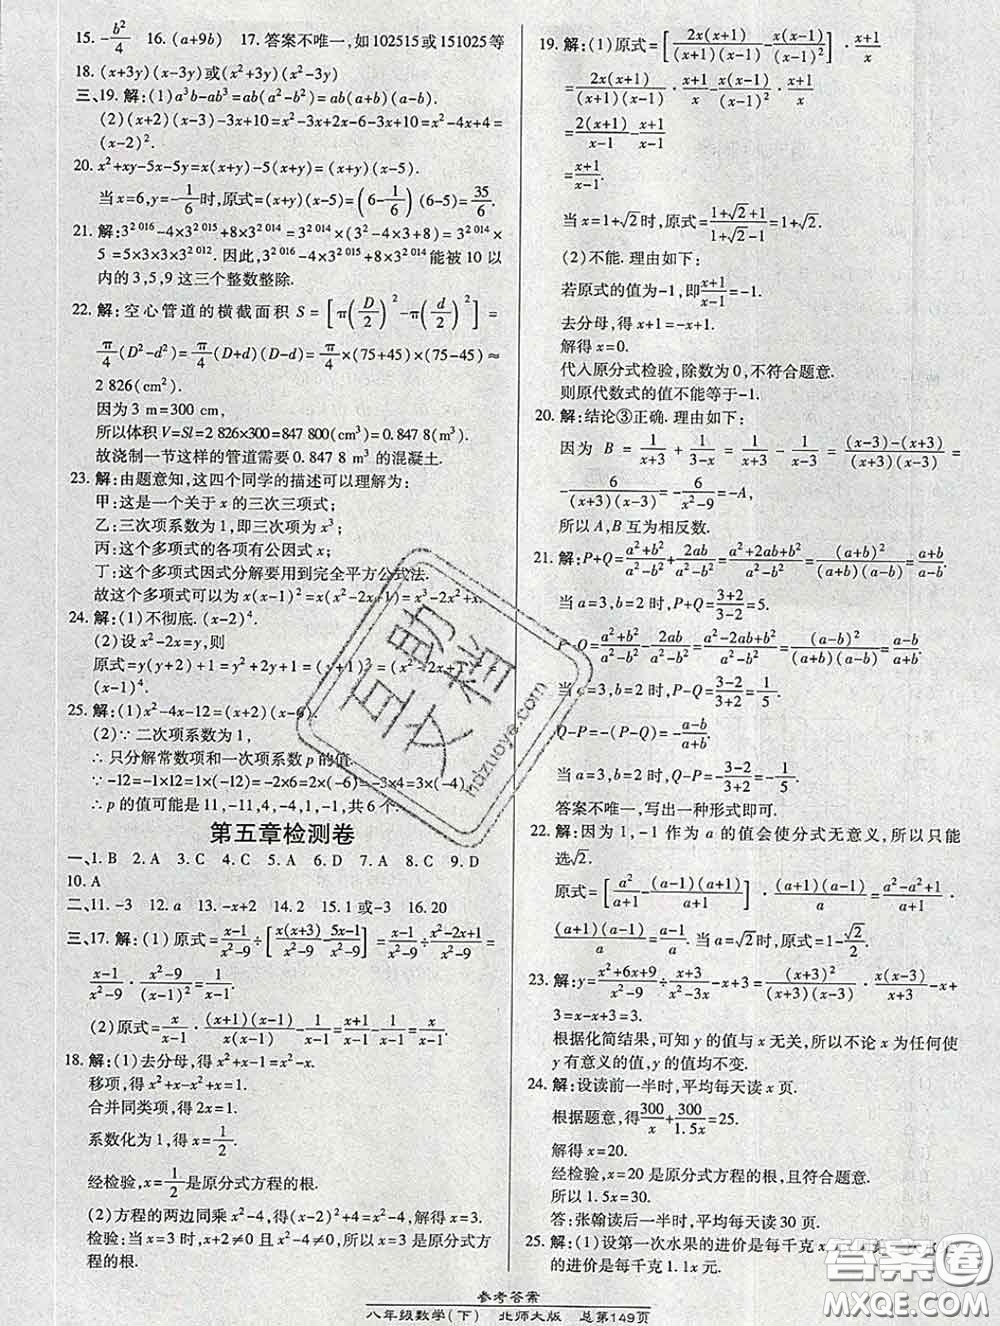 15. -b²/4　16. (a+9b)　17. 答案不唯一,如102515或151025等
18. (x+3y)(x-3y)或(x²+3y)(x²-3y)
三、19. 解:(1)a³b-ab³=ab(a²-b²)=ab(a+b)(a-b).
(2)(x+2)(x-3)-3x+10=x²-3x+2x-6-3x+10=x²-4x+4=
(x-2)².
20. x²+xy-5x-5y=x(x+y)-5(x+y)=(x+y)(x-5).
当x=6,y=-1/6时,原式=(x+y)(x-5)=(6-1/6)(6-5)=35/6.
21. 解:3^2 016-4×3^2 015+8×3^2 014=3^2 014×(3²-4×3+8)=3^2 014×
5=5×3×3×3^2 012. 因此,3^2 016-4×3^2 015+8×3^2 014能被10以
内的3,5,9这三个整数整除.
22. 解:空心管道的横截面积 S=[π(D/2)²-π(d/2)²]=
π/4(D²-d²)=π/4(D+d)(D-d)=π/4×(75+45)×(75-45)≈
2 826(cm²).
因为3 m=300 cm,
所以体积V=Sl=2 826×300=847 800(cm³)=0.847 8(m³).
故浇制一节这样的管道需要0.847 8 m³的混凝土.
23. 解:由题意知,这四个同学的描述可以理解为:
甲:这是一个关于x的三次三项式;
乙:三次项系数为1,即三次项为x³;
丙:这个多项式的各项有公因式x;
丁:这个多项式因式分解要用到完全平方公式法.
故这个多项式可以为x(x-1)²=x(x²-2x+1)=x³-2x²+x.
24. 解:(1)不彻底. (x-2)⁴.
(2)设x²-2x=y,则
原式=y(y+2)+1=y²+2y+1=(y+1)²=(x²-2x+1)²=
(x-1)⁴.
25. 解:(1)x²-4x-12=(x+2)(x-6).
(2)∵二次项系数为1,
∴只分解常数项和一次项系数p的值.
∵-12=-1×12=1×(-12)=-2×6=2×(-6)=-3×4=3×(-4),
∴p的值可能是11,-11,4,-4,1,-1,共6个.
第五章检测卷
一、1. B　2. A　3. C　4. C　5. A　6. D　7. A　8. C　9. D
10. A
二、11. -3　12. a　13. -x+2　14. 2　15. 1或-3　16. 20
三、17. 解:(1)原式=(x-1)/(x²-9)÷[x(x+3)/(x²-9)-(5x-1)/(x²-9)]=(x-1)/(x²-9)÷(x²-2x+1)/(x²-9)=
(x-1)/(x²-9)·(x²-9)/(x-1)²=1/(x-1).
(2)原式=x/(x-1)·(x+1)(x-1)/x(x-1)-1/(x-1)=(x+1)/(x-1)-1/(x-1)=x/(x-1).
18. 解:(1)去分母,得x²+x-1=x²-x.
移项,得x²-x²+x+x=1.
合并同类项,得2x=1.
系数化为1,得x=1/2.
经检验,x=1/2是原分式方程的根.
(2)方程的两边同乘x²-4,得(x-2)²+4=x²-4,解得x=3.
检验:当x=3时,x+2≠0且x²-4≠0,所以x=3是原分式方
程的根.
19. 解:(1)原式=[2x(x+1)/(x+1)(x-1)-x(x-1)/(x-1)²]·(x+1)/x
=2x(x+1)/(x+1)(x-1)·(x+1)/x-x(x-1)/(x-1)²·(x+1)/x
=2(x+1)/(x-1)-(x+1)/(x-1)
=(x+1)/(x-1).
当x=1+√2时,原式=(1+√2+1)/(1+√2-1)=1+√2.
(2)不能. 理由如下:
若原式的值为-1,即(x+1)/(x-1)=-1.
去分母,得x+1=-x+1.
解得x=0.
代入原分式检验,除数为0,不符合题意.
则原代数式的值不能等于-1.
20. 解:结论③正确. 理由如下:
因为 B=1/(x+3)+1/(3-x)=1/(x+3)-1/(x-3)=((x-3)-(x+3))/(x+3)(x-3)=
-6/(x+3)(x-3)=-6/(x²-9)=-A,
所以A,B互为相反数.
21. 解:P+Q=(a²+b²)/(a²-b²)+2ab/(a²-b²)=(a²+2ab+b²)/(a²-b²)=(a+b)²/(a+b)(a-b)=(a+b)/(a-b).
当a=3,b=2时,P+Q=(3+2)/(3-2)=5.
P-Q=(a²+b²)/(a²-b²)-2ab/(a²-b²)=(a²-2ab+b²)/(a²-b²)=(a-b)²/(a+b)(a-b)=(a-b)/(a+b).
当a=3,b=2时,P-Q=(3-2)/(3+2)=1/5.
Q-P=-(P-Q)=-(a-b)/(a+b).
当a=3,b=2时,Q-P=-(3-2)/(3+2)=-1/5.
答案不唯一,写出一种形式即可.
22. 解:因为1,-1作为a的值会使分式无意义,所以只能
选√2.
原式=[a²/(a+1)-(a-1)(a+1)/(a+1)]·(a+1)(a-1)/a=(a²-a²+1)/(a+1)·
(a+1)(a-1)/a=(a-1)/a. 当a=√2时,原式=1-√2/2.
23. 解:y=(x²+6x+9)/(x²-9)÷(x+3)/(x²-3x)-x+3=(x+3)²/(x+3)(x-3)·x(x-3)/(x+3)-x+
3=x-x+3=3.
根据化简结果,可知y的值与x无关,所以不论x为任何使
y有意义的值,y的值均不变.
24. 解:设读前一半时,平均每天读x页.
根据题意,得300/x+300/1.5x=25.
解得x=20.
经检验,x=20是原分式方程的根,且符合题意.
所以1.5x=30.
答:张翰读后一半时,平均每天读30页.
25. 解:(1)设第一次水果的进价是每千克x
的进价是每千克1.1x元.
参考答案
八年级数学(下)　北师大版　总第149页
互助文档
hdzuoye.com
答案圈
MXQE.COM